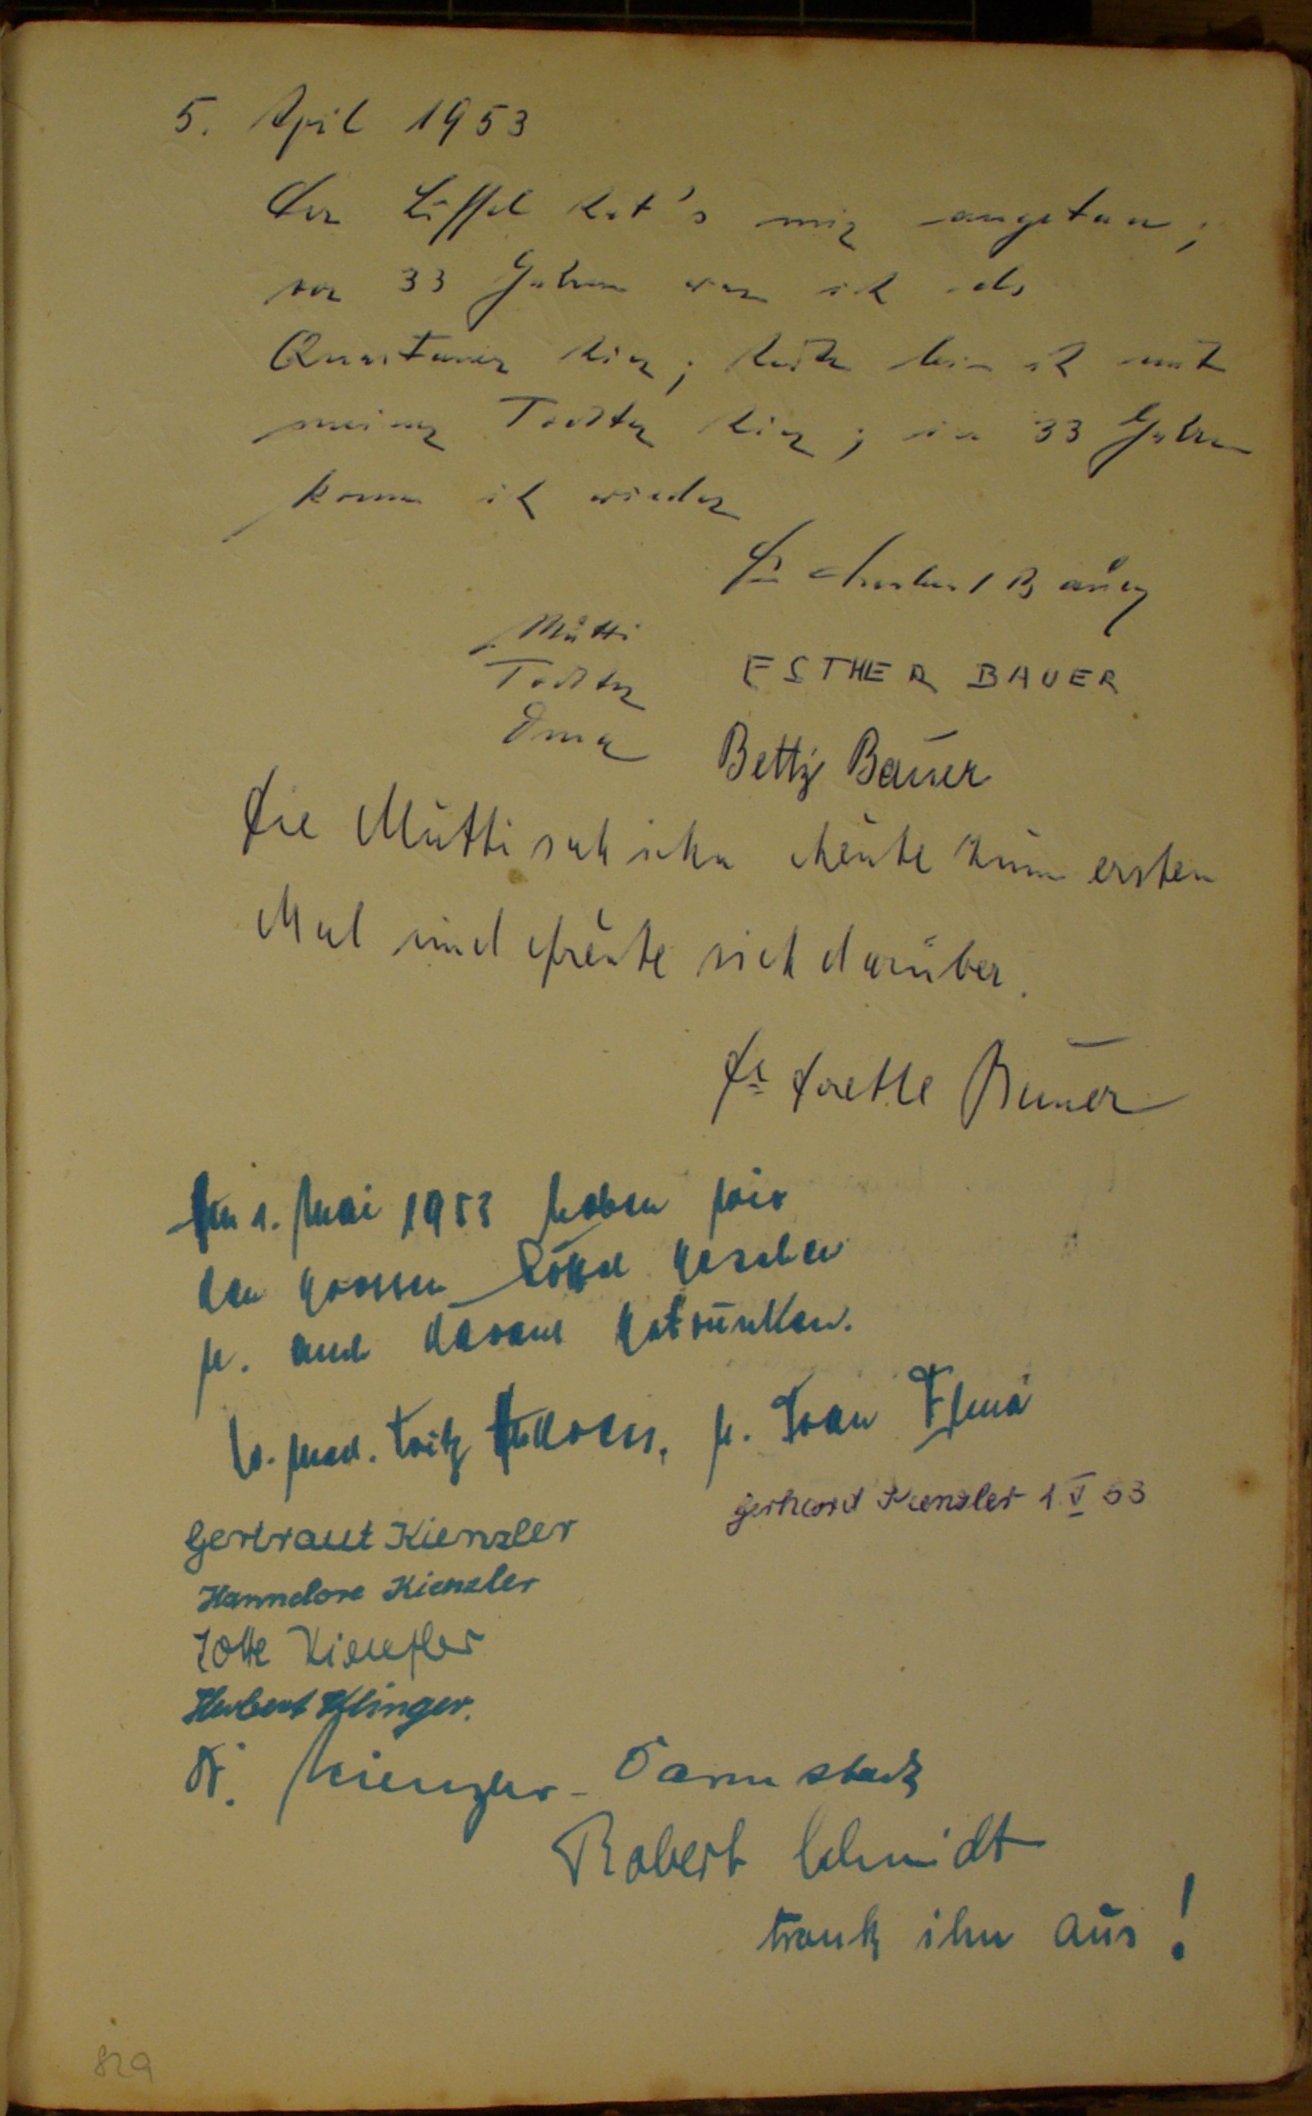 5. April 1953
Der Löffel hat's mir angetan,
vor 33 Jahren war ich als
Quartaner hier; heute bin ich mit
meiner Tochter hier; in 33 Jahren
komm ich wieder
Dr Herbert Bauer
Mutti
Tochter ESTHER BAUER
Oma Betty Bauer
Die Mutti sah ihn heute zum ersten
Mal und freute sich darüber.
Dr Dorette Bauer
Am 1. Mai 1953 haben wir
den grossen Löffel gesehen
u. auch daraus getrunken.
Dr. med. Fritz u. Frau
Gerhard Kienzler 1.V 53
Gertraut Kienzler
Hannelore Kienzler
Lotte Kienzler
Herbert Klinger.
Kienzler - Darmstadt
Robert Schmidt
trank ihn aus!
82a